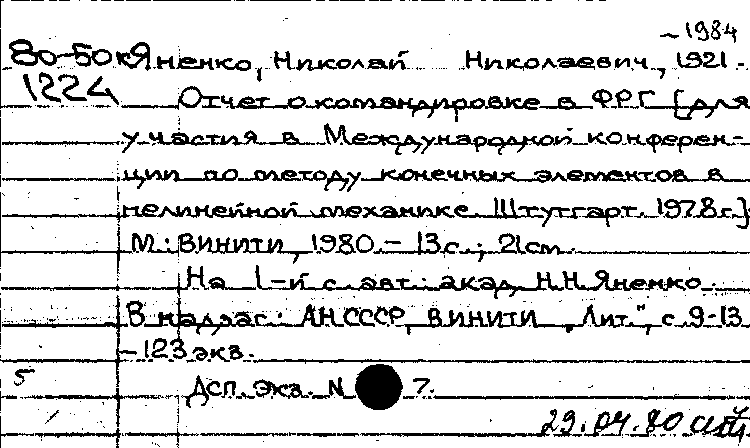 ~1984
80-50к Яненко, Николай Николаевич, 1921-
1224 Отчет о командировке в ФРГ [для
участия в Международной конферен-
ции по методу конечных элементов в
нелинейной механике. Штутгарт. 1978г.]
М.: ВИНИТИ, 1980.- 13с.; 21см.
На 1-й с. авт.: акад. Н.Н. Яненко.
В надзаг.: АН СССР, ВИНИТИ „Лит.", с. 9-13
-123 экз.
5 Дсп. Экз. N 7.
29.04.80